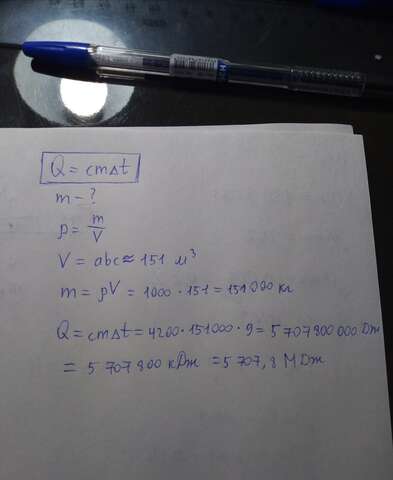 Q = cmΔt
m - ?
ρ = m/V
V = abc ≈ 151 м³
m = ρV = 1000 · 151 = 151 000 кг
Q = cmΔt = 4200 · 151000 · 9 = 5 707 800 000 Дж
= 5 707 800 кДж = 5 707,8 МДж